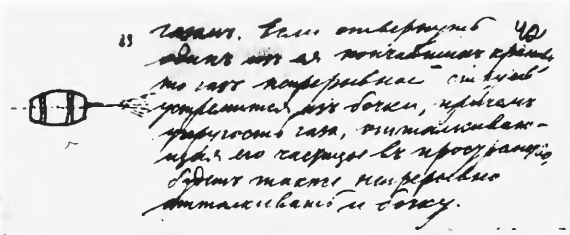 газомъ. Если отвернуть
одинъ изъ ея тончайшихъ крановъ
то газъ непрерывной струей
устремится изъ бочки, причемъ
упругость газа, отталкиваю-
щая его частицы въ пространство,
будетъ также непрерывно
отталкивать и бочку.